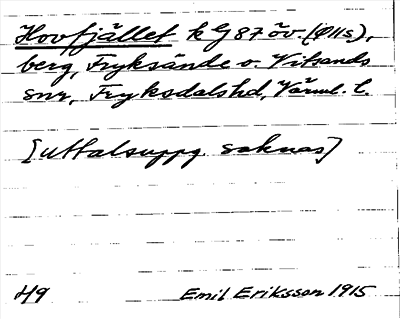 Hovfjället k G 87 öv. (Ö11s),
berg, Fryksände o. Vitsands
snr, Fryksdals hd, Värml. l.
[uttalsuppg. saknas]
H9 Emil Eriksson 1915